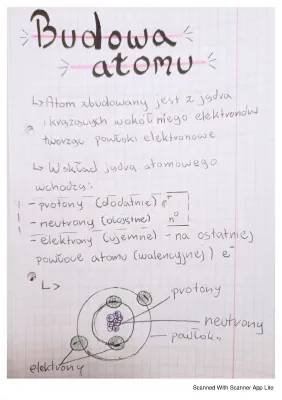 Budowa
atomu
↳Atom zbudowany jest z jądra
i krążących wokół niego elektronów
tworząc powłoki elektronowe
↳W skład jądra atomowego
wchodzą:
- protony (dodatnie) p⁺
- neutrony (obojętne) n⁰
- elektrony (ujemne) - na ostatniej
powłoce atomu (walencyjnej) e⁻
↳
protony
neutrony
powłoki
elektrony
Scanned With Scanner App Lite